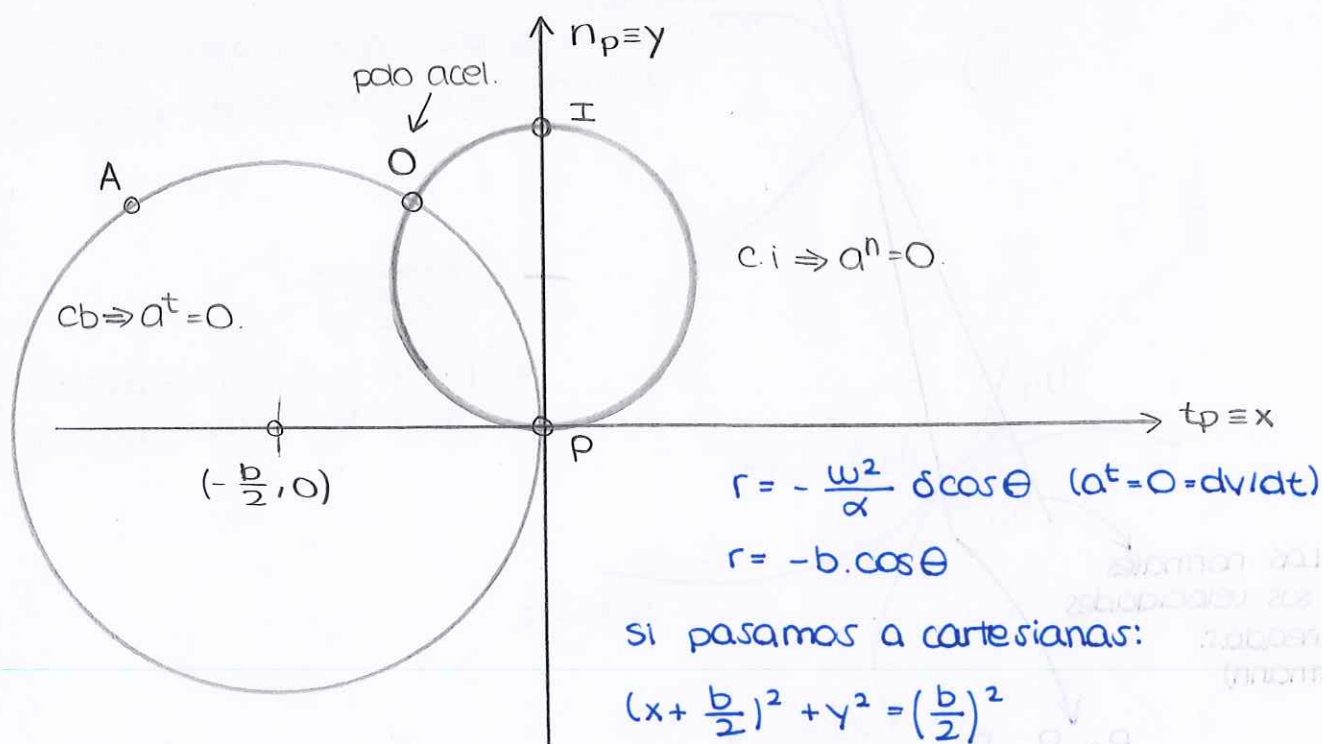 np≡y
polo acel.
I
O
A
c.i ⇒ aⁿ=0.
cb ⇒ aᵗ=0.
tp ≡ x
P
(-b/2, 0)
r = - ω²/α δcosθ (aᵗ=0=dv/dt)
r = -b.cosθ
si pasamos a cartesianas:
(x + b/2)² + y² = (b/2)²